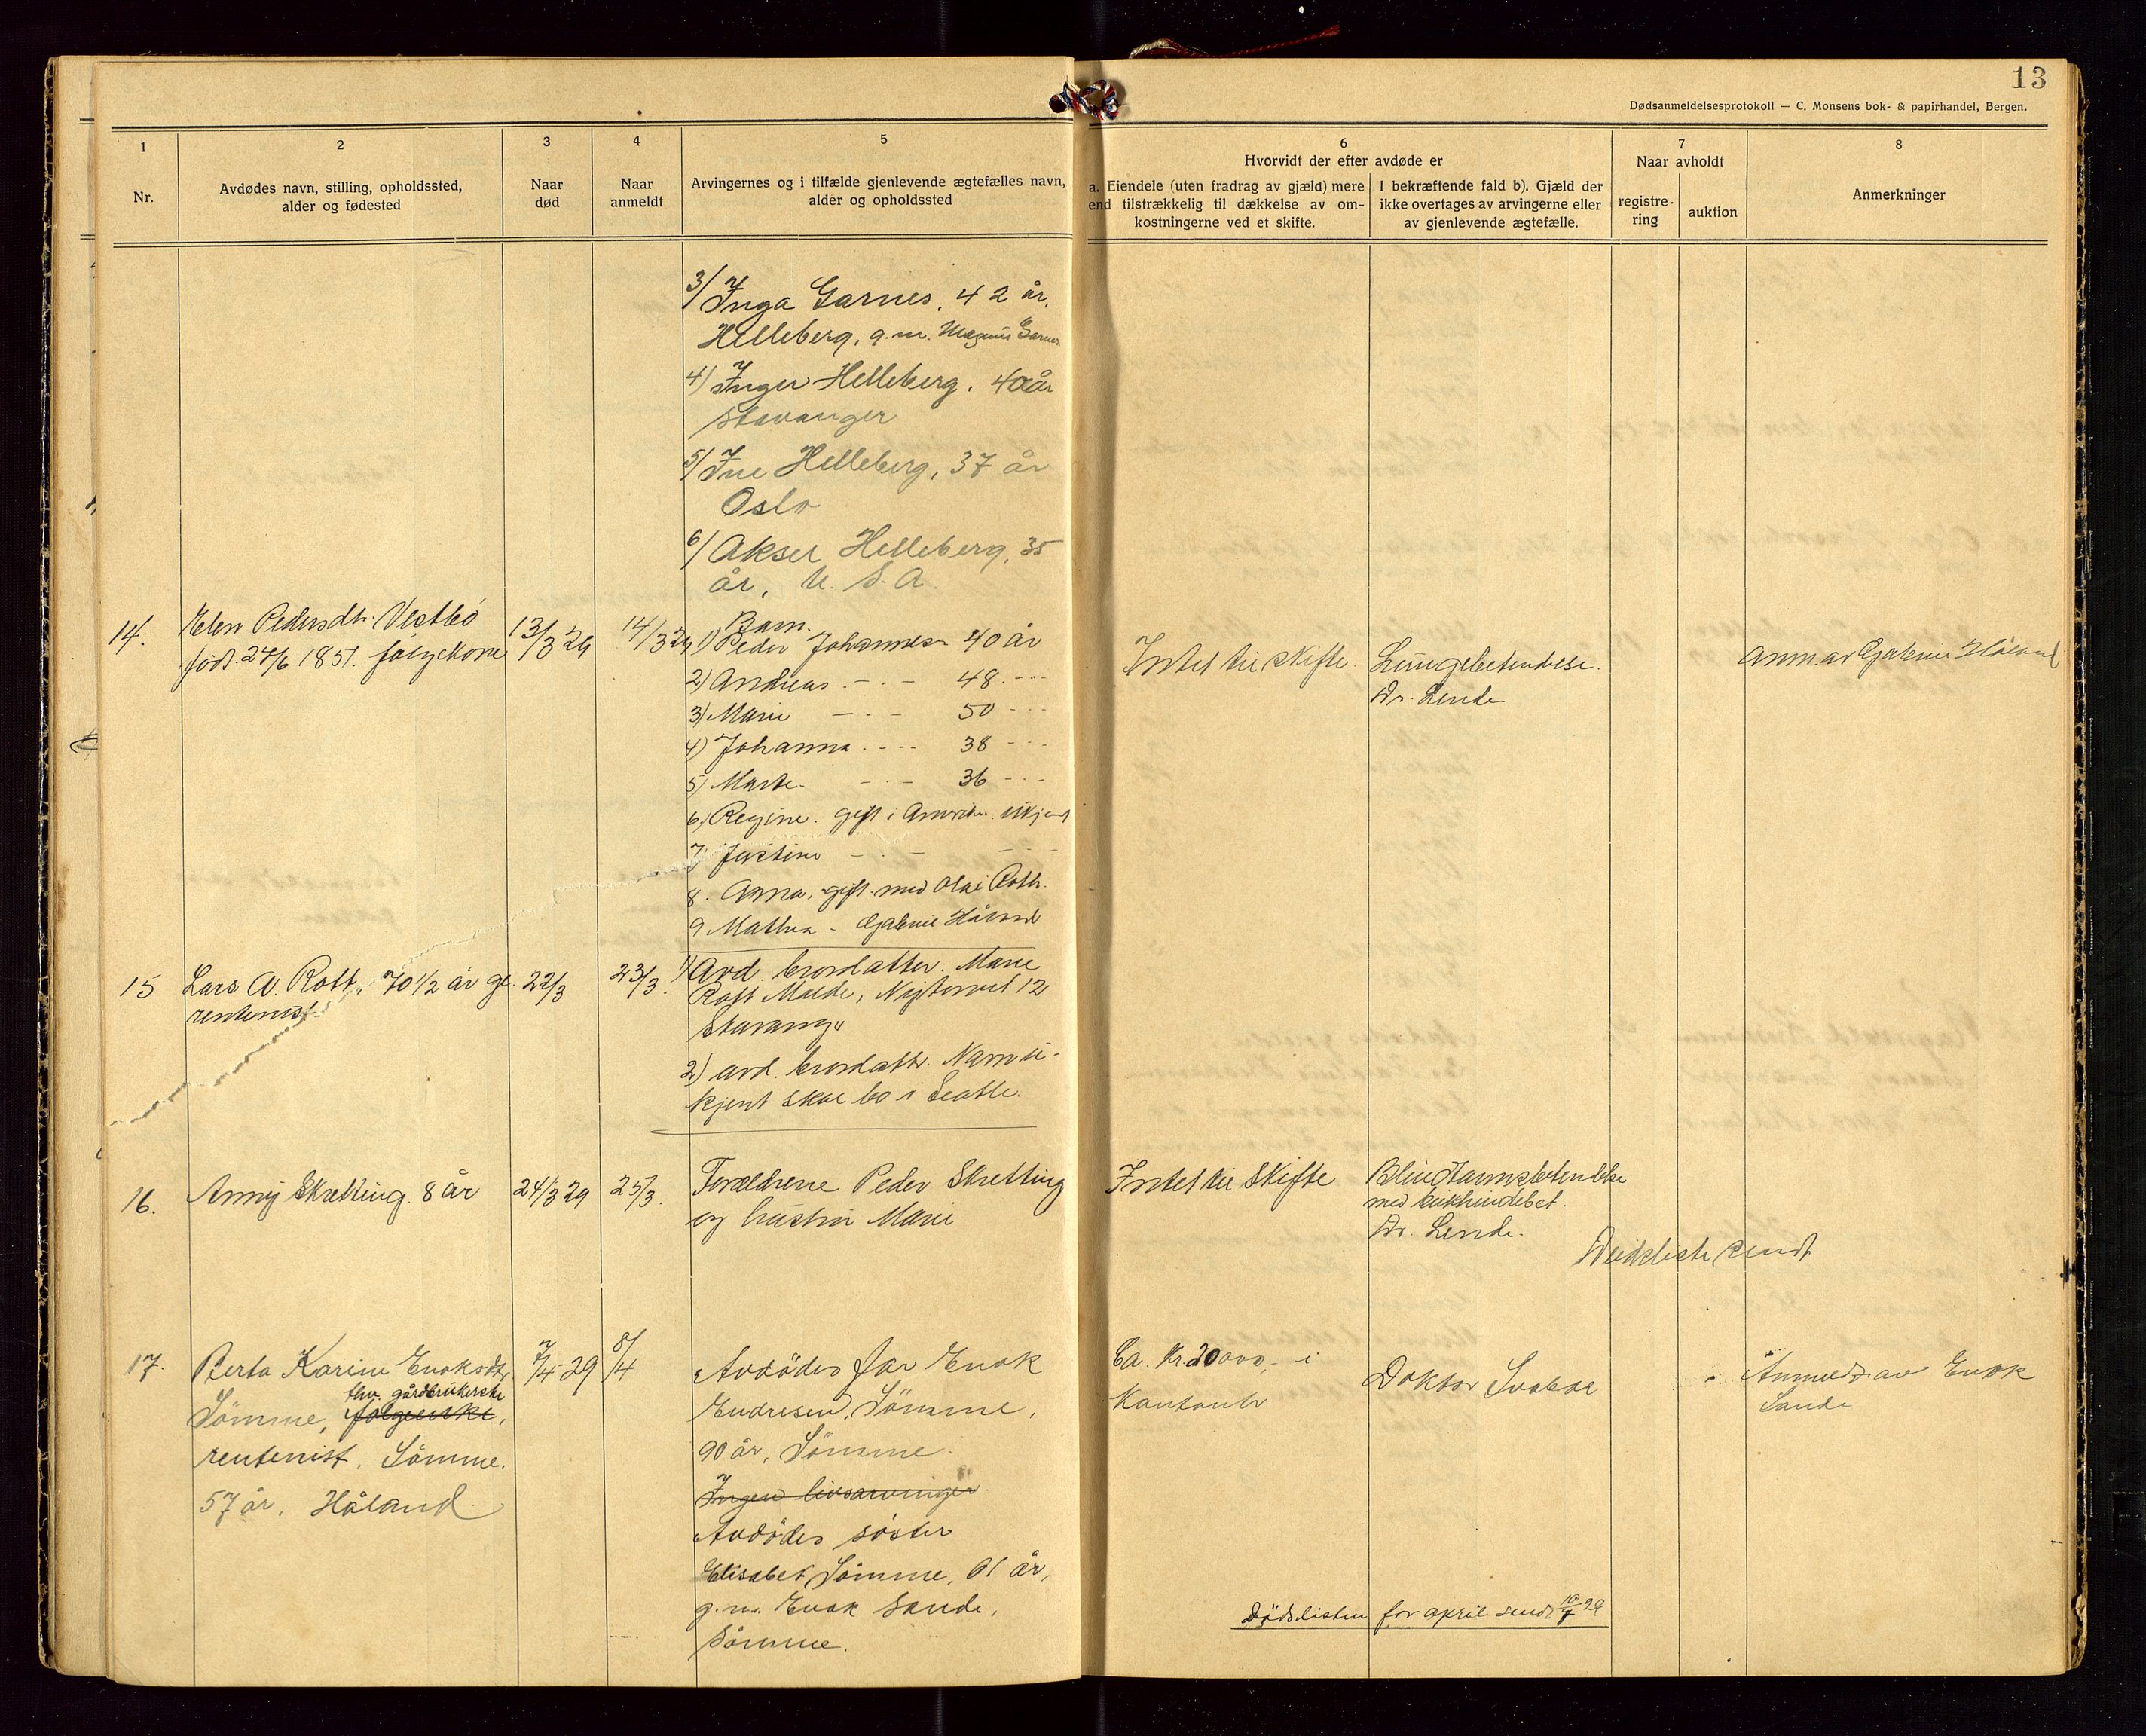 13
Dødsanmeldelsesprotokoll — C. Monsens bok- & papirhandel, Bergen.
1
Nr.
2
Avdødes navn, stilling, opholdssted,
alder og fødested
3
Naar
død
4
Naar
anmeldt
5
Arvingernes og i tilfælde gjenlevende ægtefælles navn,
alder og opholdssted
6
Hvorvidt der efter avdøde er
a. Eiendele (uten fradrag av gjæld) mere
end tilstrækkelig til dækkelse av om-
kostningerne ved et skifte.
I bekræftende fald b). Gjæld der
ikke overtages av arvingerne eller
av gjenlevende ægtefælle.
7
Naar avholdt
registre-
ring
auktion
8
Anmerkninger
3/ Inga Garnes, 42 år,
Helleberg, g.m. Magnus Garnes
4) Inger Helleberg, 40 år
Stavanger
5/ Ine Helleberg, 37 år
Oslo
6/ Aksel Helleberg, 35
år, U. S. A.
14.
Elen Pedersdtr. Vestbö
född. 27/6 1851. følgekone
13/3 29
14/3 29
Barn.
1) Peder Johannesen 40 år
2) Andreas - . - 48 . - - -
3) Marie - . - 50 - - -
4) Johanna . - - - 38 - - -
5) Marte - . - 36 - - -
6, Regine. gift i Amerika. ukjent
7, Justine - . - - - -
8. Anna, gift. med Olai Roth.
9 Mathea - Gabriel Håland
Intet til skifte.
Lungebetendelse.
Dr. Lende
Anm. av Gabriel Håland
15
Lars A. Rott, 70 1/2 år gl.
rentenist
22/3
23/3.
1) Avd. brordatter. Marie
Rott Malde, Nytorvet 12
Stavanger
2) avd. brordattr. Navn u-
kjent skal bo i Seatle.
16.
Anny Skretting 8 år
24/3 29
25/3.
Forældrene Peder Skretting
og hustru Marie
Intet til skifte
Blindtarmsbetendelse
med bukhindebet.
Dr. Lende.
Dødsliste sendt
17.
Berta Karine Enoksdtr.
fhv. gårdbrukerske
Sömme, følgeenke,
rentenist, Sömme.
57 år, Håland
7/4 - 29
8/4
Avdödes far Enok
Endresen, Sömme,
90 år, Sömme.
Ingen livsarvinger
Avdödes söster
Elisabet Sömme, 61 år,
g.m. Enok Sande,
Sömme.
Ca. kr. 20 000,- i
Kontanter
Doktor
Anmeldt av Enok
Sande
Dödslisten for april sendt 10/4 29